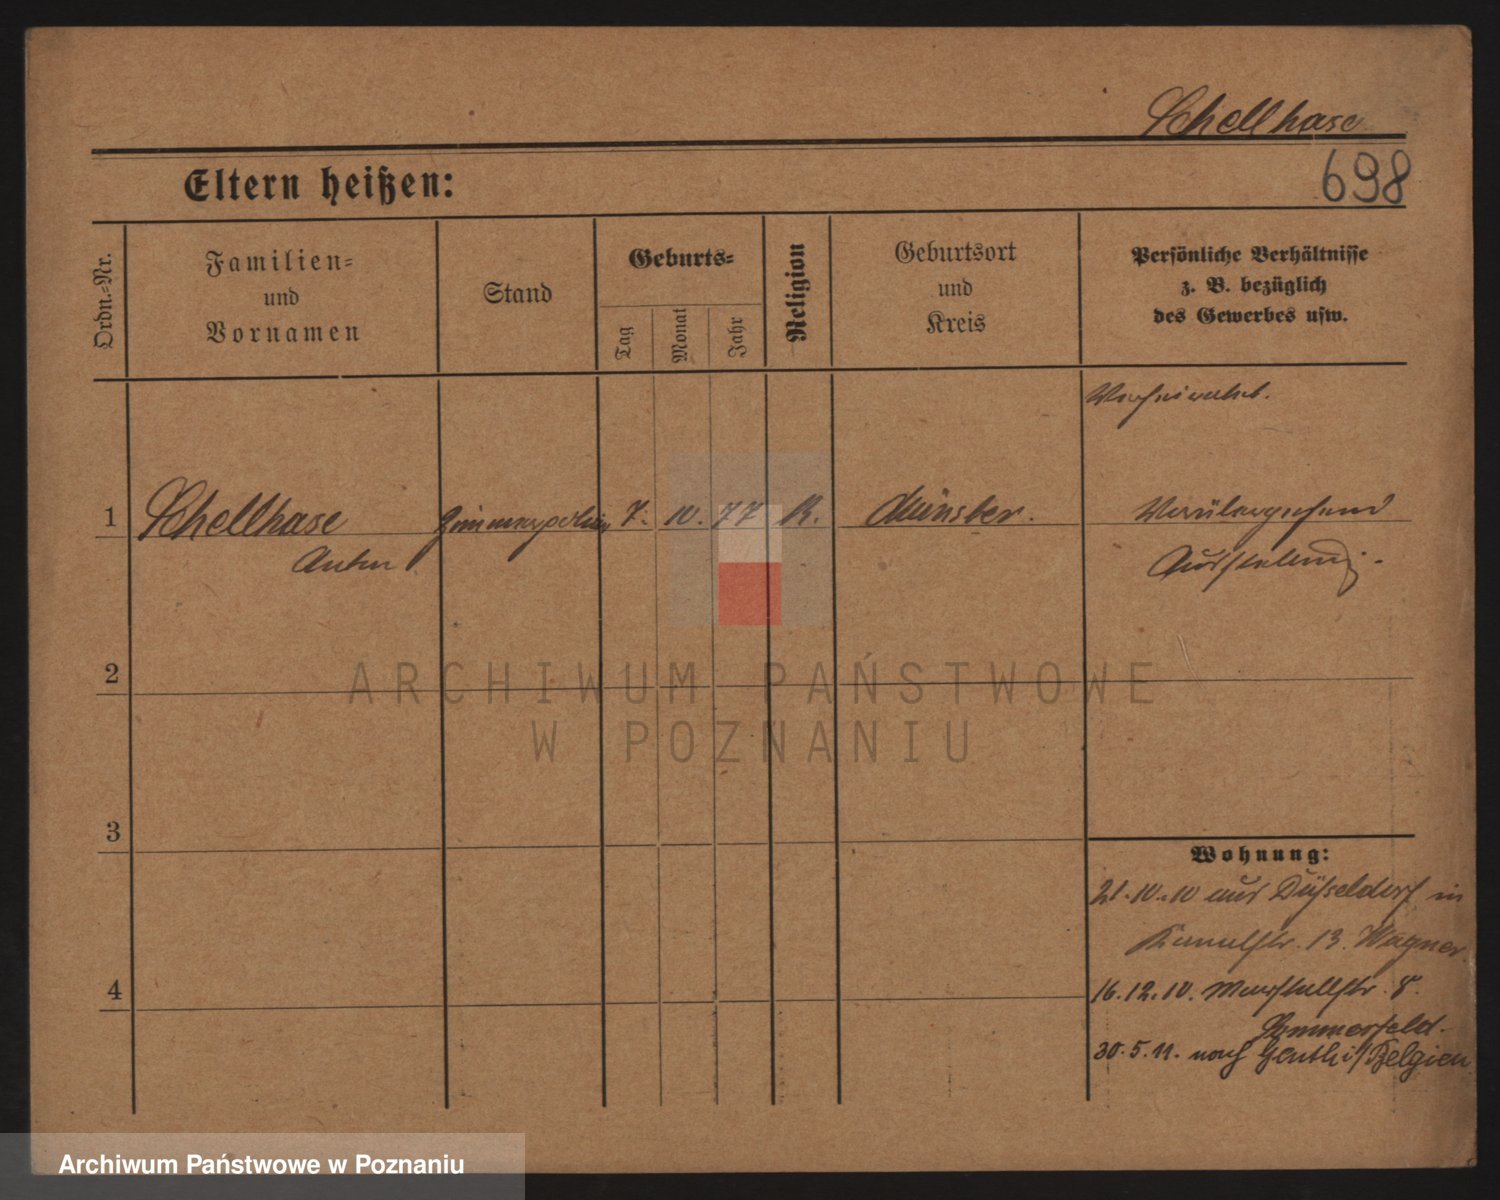 Schellhase
698
Eltern heißen:
Ordn.-Nr.
Familien-
und
Vornamen
Stand
Geburts-
Tag
Monat
Jahr
Religion
Geburtsort
und
Kreis
Persönliche Verhältnisse
z. B. bezüglich
des Gewerbes usw.
Verheiratet.
1
Schellhase
Anton
Zimmerpolier
7.
10.
77
K.
Münster.
Vorübergehend
Ausstellung.
2
ARCHIWUM PAŃSTWOWE
W POZNANIU
3
Wohnung:
21.10.10 aus Düsseldorf in
Kanalstr. 13. Wagner.
4
16.12.10. Marstallstr. 8.
Sommerfeld.
30.5.11. nach Genth i/Belgien
Archiwum Państwowe w Poznaniu